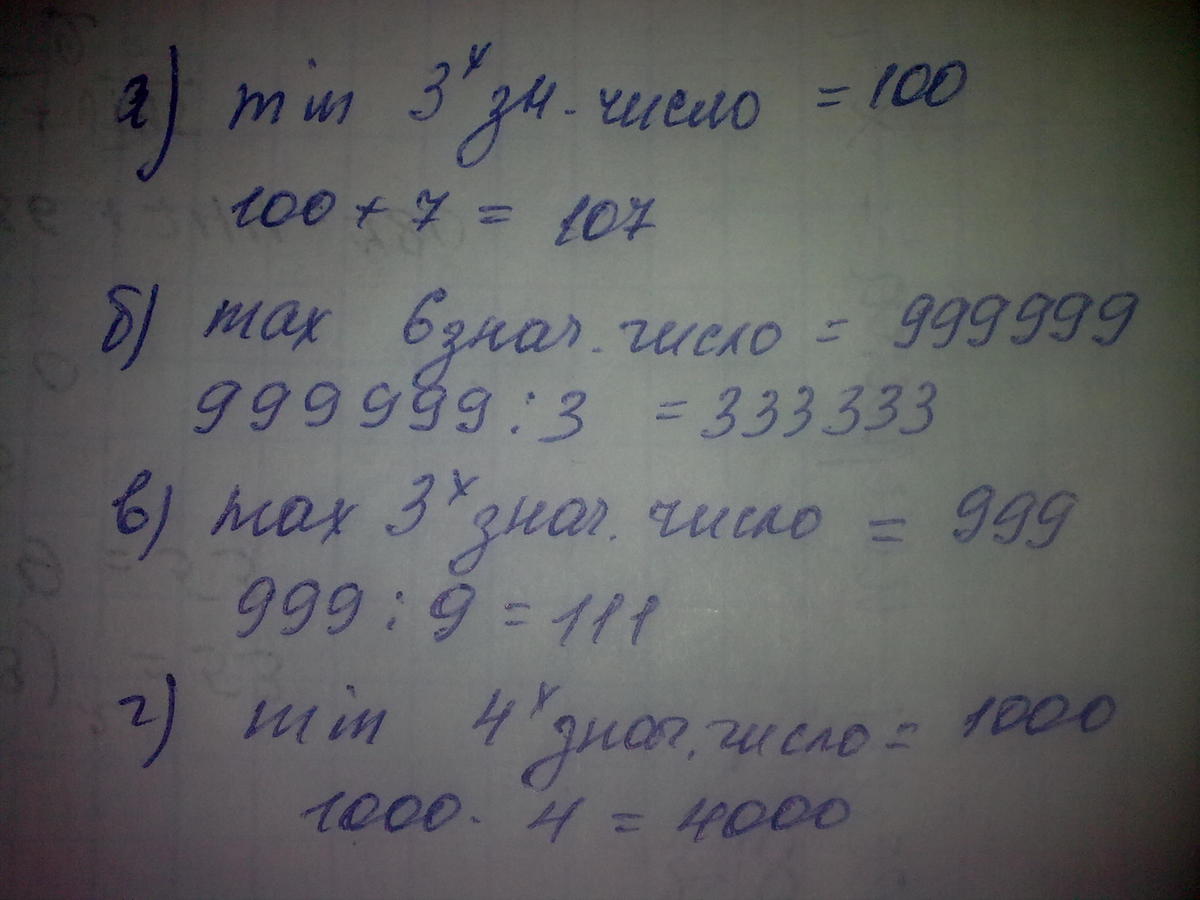 а) min 3х зн. число = 100
100 + 7 = 107
б) max 6 знач. число = 999999
999999 : 3 = 333333
в) max 3х знач. число = 999
999 : 9 = 111
г) min 4х знач. число = 1000
1000 · 4 = 4000